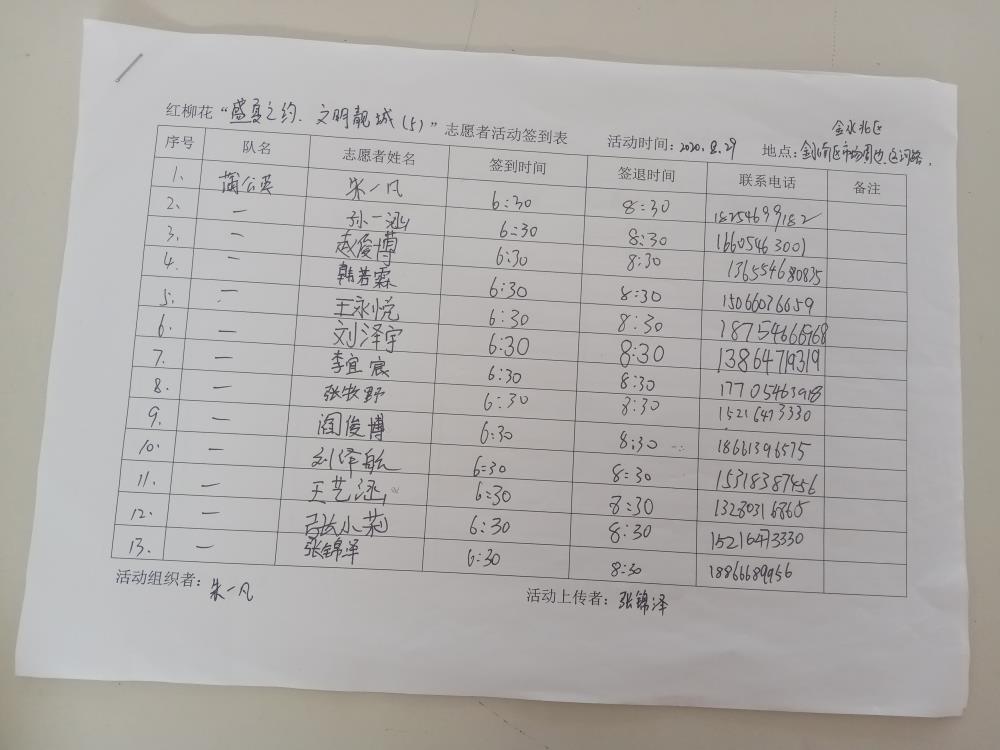 红柳花“盛夏之约、文明靓城(5)”志愿者活动签到表 活动时间:2020.8.29 地点:
金水北区
序号 队名 志愿者姓名 签到时间 签退时间 联系电话 备注
1、 蒲公英 朱一凡 6:30 8:30 18254699182
2、 一 孙一涵 6:30 8:30 16605463001
3、 一 赵俊博 6:30 8:30 136554680835
4. 一 韩若霖 6:30 8:30 15066076659
5. 一 王永悦 6:30 8:30
6. 一 刘泽宇 6:30 8:30 13864719319
7. 一 李宜宸 6:30 8:30 17705463918
8. 一 张牧野 6:30 8:30 15216473330
9. 一 阎俊博 6:30 8:30 18661396575
10. 一 刘泽航 6:30 8:30 15318387456
11. 一 王艺涵 6:30 8:30 13280316865
12. 一 小莉 6:30 8:30 15216473330
13. 一 张锦泽 6:30 8:30 18866689956
活动组织者:朱一凡 活动上传者:张锦泽